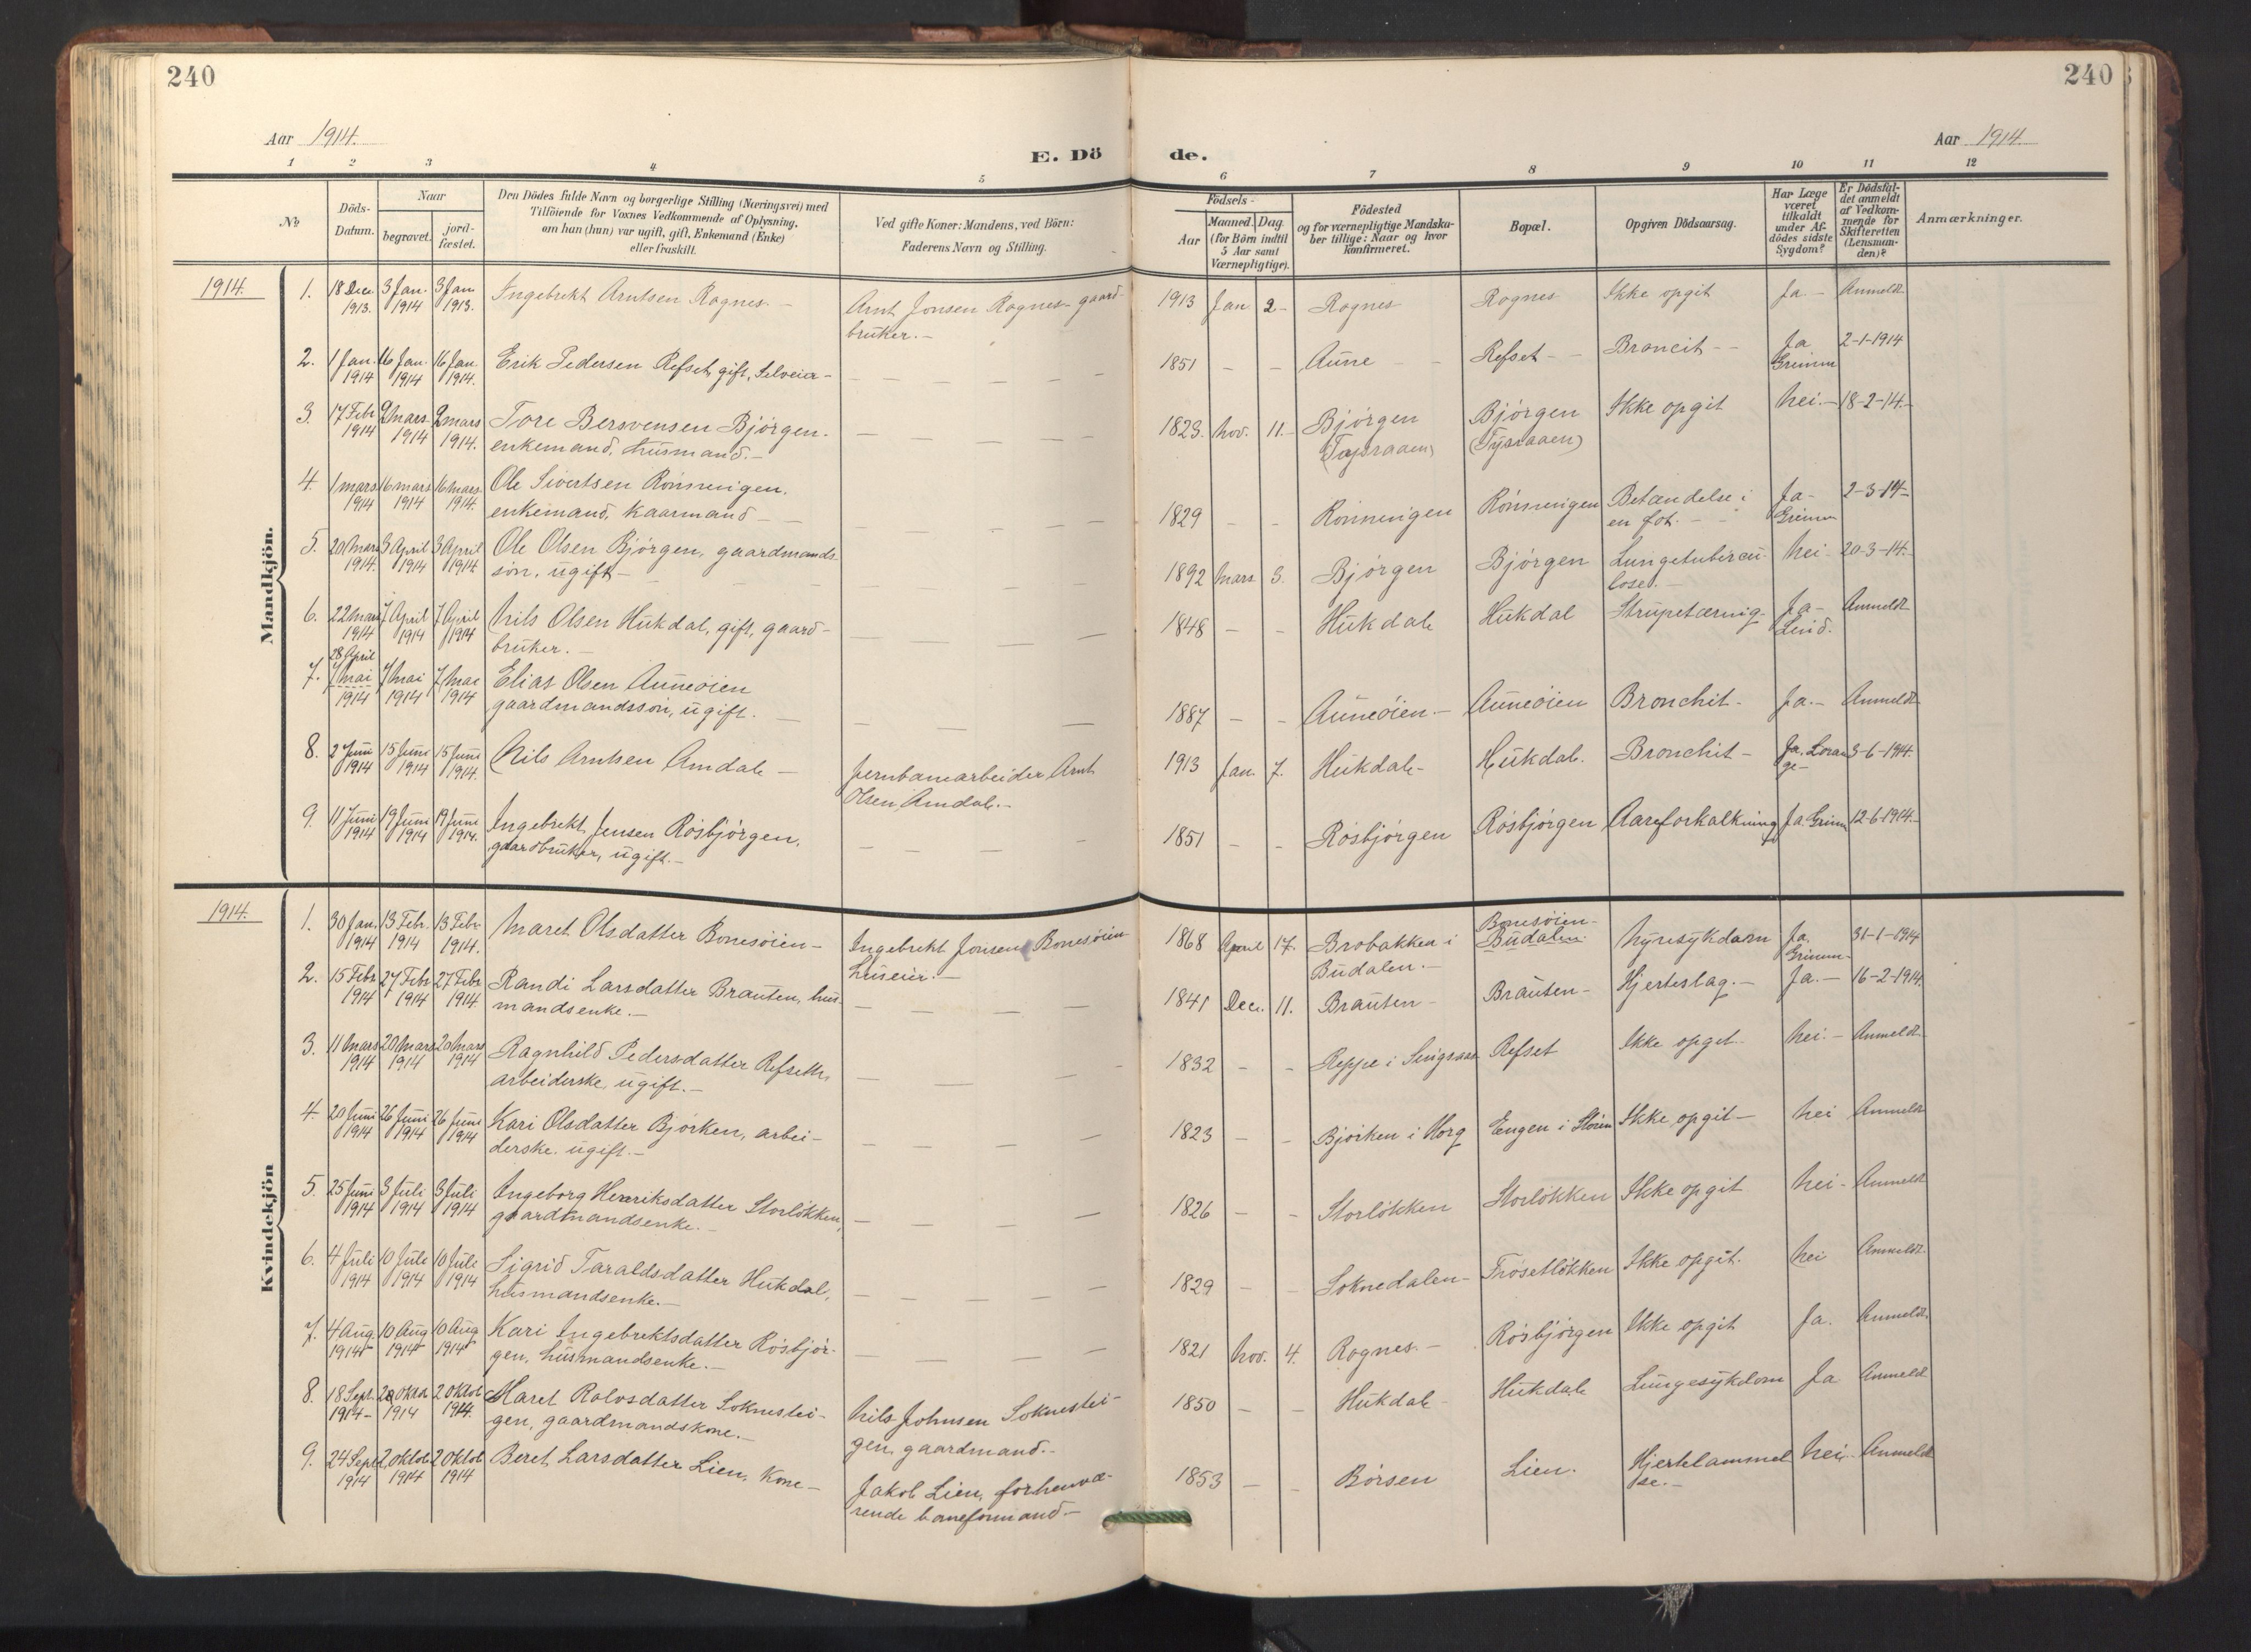 240
240
Aar 1914.
E. Dö
de.
Aar 1914.
1 2 3 4 5 6 7 8 9 10 11 12
No
Döds-
Datum.
Naar
begravet.
jord-
fæstet.
Den Dödes fulde Navn og borgerlige Stilling (Næringsvei) med
Tilföiende for Voxnes Vedkommende af Oplysning,
om han (hun) var ugift, gift, Enkemand (Enke)
eller fraskilt.
Ved gifte Koner: Mandens, ved Börn:
Faderens Navn og Stilling.
Födsels-
Aar
Maaned. Dag.
(for Börn indtil
5 Aar samt
Værnepligtige).
Födested
og for værnepligtige Mandska-
ber tillige: Naar og hvor
konfirmeret.
Bopæl.
Opgiven Dödsaarsag.
Har Læge
været
tilkaldt
under Af-
dödes sidste
Sygdom?
Er Dödsfal-
det anmeldt
af Vedkom-
mende for
Skifteretten
(Lensman-
den)?
Anmærkninger.
Mandkjön.
1914.
1. 18 Dec. 3 Jan. 3 Jan Ingebrekt Arntsen Rognes - Arnt Jonsen Rognes gaard- 1913 Jan 2- Rognes Rognes Ikke opgit Ja - Anmeldt
1913. 1914 1913. bruker. -
2. 1 Jan. 16 Jan. 16 Jan. Erik Pedersen Refset, gift, Selveier - 1851 - - Aune Refset - Broncit - Ja 2-1-1914
1914 1914 1914. Grimm
3. 17 Febr 9 mars 9 mars Tore Bersvensen Bjørgen. 1823. Nov. 11. Bjørgen Bjørgen Ikke opgit Nei. - 18-2-14.
1914 1914 1914. enkemand, husmand. -
4. 1 mars 16 mars 16 mars Ole Sivertsen Rønningen. 1829 - - Rønningen Rønningen Betændelse i Ja - 2-3-14-
1914 1914 1914. enkemand, kaarmand - en fot. - Grimm
5. 20 Mars 3 April 3 April Ole Olsen Bjørgen, gaardmands- 1892 Mars 3. Bjørgen Bjørgen Lungetubercu- Nei - 20-3-14.
1914. 1914 1914. søn, ugift - lose. -
6. 22 Mars 7 April 7 April Nils Olsen Hukdal, gift, gaard- 1848 - - Hukdal Hukdal Strupetæring Ja - Anmeldt
1914 1914 1914 bruker. - Lind.
28 April
7. 7 Mai 7 Mai 7 Mai Elias Olsen Auneøien 1887 - - Auneøien. - Auneøien Bronchit - Ja. - Anmeldt
1914 1914 1914 gaardmandssøn, ugift.
8. 2 Juni 15 Juni 15 Juni Nils Arntsen Amdal - Jernbanearbeider Arnt 1913 Jan. 7. Hukdal - Hukdal. Bronchit - Ja. 3-6-1914.
1914 1914 1914. Olsen Amdal. -
9. 11 Juni 19 Juni 19 Juni Ingebrekt Jensen Røsbjørgen, 1851 - - Røsbjørgen Røsbjørgen Aareforkalkning Ja. Grimm 12-6-1914.
1914 1914 1914. gaardbruker, ugift. -
Kvindekjön
1914.
1. 30 Jan. 13 Febr. 13 Febr Maret Olsdatter Bonesøien - Ingebrekt Jonsen Bonesøien 1868 April 17. Brobakken i Bonesøien - Nyresykdom Ja. 31-1-1914
1914 1914 1914. huseier. - Budalen. - Budalen. Grimm
2. 15 Febr 27 Febr 27 Febr Randi Larsdatter Brauten, hus- 1841 Dec. 11. Brauten - Brauten - Hjerteslag. - Ja. - 16-2-1914.
1914 1914 1914 mandsenke. -
3. 11 Mars 20 Mars 20 Mars Ragnhild Pedersdatter Refseth, 1832 - - Reppe i Singsaas Refset Ikke opgit. Nei. - Anmeldt.
1914 1914 1914 arbeiderske, ugift. -
4. 20 Juni 26 Juni 26 Juni Kari Olsdatter Bjørken, arbei- 1823 - - Bjørken i Horg Engen i Støren Ikke opgit - Nei Anmeldt
1914 1914 1914 derske, ugift. -
5. 25 Juni 3 Juli 3 Juli Ingeborg Henriksdatter Storløkken, 1826 - - Storløkken Storløkken Ikke opgit Nei - Anmeldt
1914 1914 1914 gaardmandsenke. -
6. 4 Juli 10 Juli 10 Juli Sigrid Taraldsdatter Hukdal, 1829 - - Soknedalen - Frøsetløkken Ikke opgit. Nei Anmeldt.
1914 1914 1914 husmandsenke. -
7. 4 Aug. 10 Aug 10 Aug Kari Ingebrektsdatter Røsbjør- 1821 Nov. 4. Rognes. - Røsbjørgen Ikke opgit Ja. Anmeldt.
1914 1914 1914 gen, husmandsenke. -
8. 18 Sept. 2 Oktob 2 Oktob Maret Rolvsdatter Soknestei- Nils Johnsen Soknestei- 1850 - - Hukdal - Hukdal Lungesykdom Ja Anmeldt
1914 - 1914 1914. gen, gaardmandskone. - gen, gaardmand. -
9. 24 Sept 2 Oktob 2 Oktob Beret Larsdatter Lien, Kone - Jakob Lien, forhenvæ- 1853 - - Børsen Lien. Hjertelammel- Nei. Anmeldt
1914 1914 1914 rende baneformand - se. -